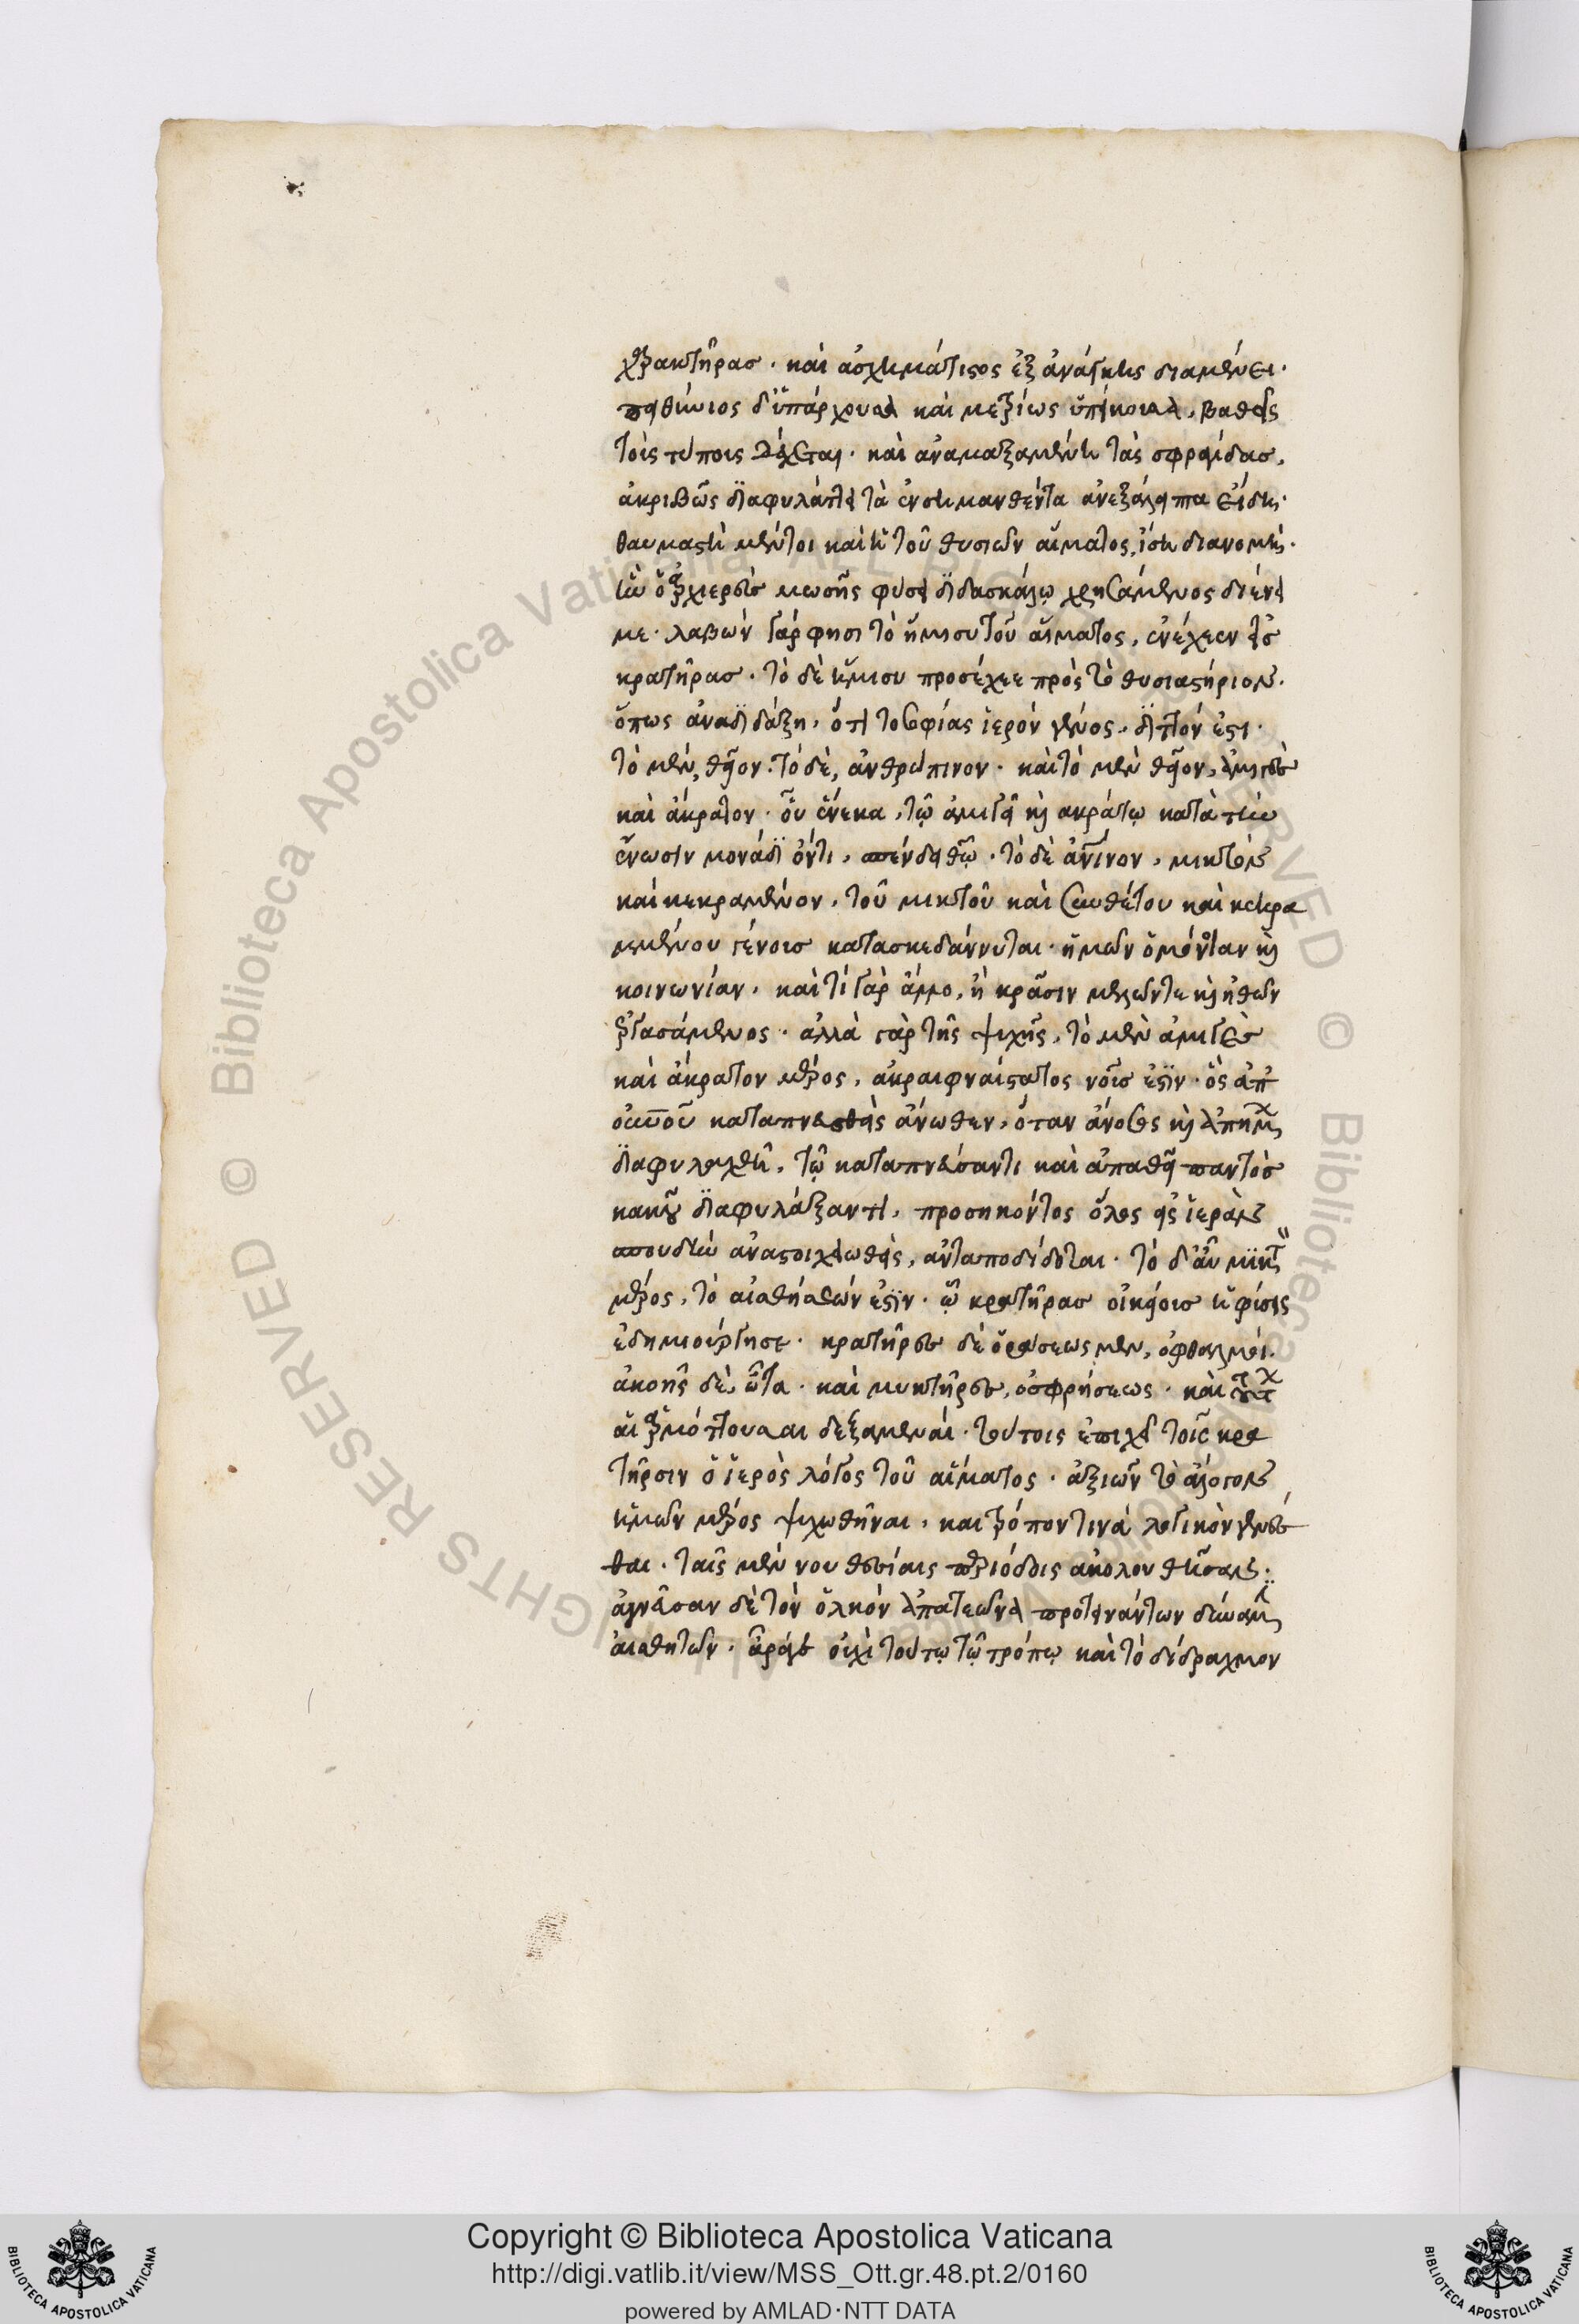 χαρακτῆρας· καὶ ἀσχημάτιστος ἐξ ἀνάγκης διαμένει·
πειθήνιος δ' ὑπάρχουσα καὶ μετρίως ὑπείκουσα, βαθεῖς
τοὺς τύπους δέχεται· καὶ ἀναμαξαμένη τὰς σφραγίδας,
ἀκριβῶς διαφυλάττει τὰ ἐνσημανθέντα ἀνεξάλειπτα εἴδη·
θαυμαστὴ μέντοι καὶ ἡ τοῦ θυσιῶν αἵματος, ἴση διανομή·
ἣν ὁ ἀρχιερεὺς μωσῆς φύσει διδασκάλῳ χρησάμενος διένει
με· λαβὼν γάρ φησι τὸ ἥμισυ τοῦ αἵματος, ἐνέχεεν εἰς
κρατῆρας· τὸ δὲ ἥμισυ προσέχεε πρὸς τὸ θυσιαστήριον·
ὅπως ἀναδιδάξῃ, ὅτι τὸ σοφίας ἱερὸν γένος, διττόν ἐστι·
τὸ μὲν, θεῖον· τὸ δὲ, ἀνθρώπινον· καὶ τὸ μὲν θεῖον, ἀμιγὲς
καὶ ἄκρατον· οὗ ἕνεκα, τῷ ἀμιγεῖ καὶ ἀκράτῳ κατὰ τὴν
ἕνωσιν μονάδι ὄντι, σπένδει θεῷ· τὸ δὲ ἀνθρώπινον, μικτὸν
καὶ κεκραμένον, τοῦ μικτοῦ καὶ συνθέτου καὶ κεκρα
μένου γένους κατασκεδάννυται· ἡμῶν ὁμόνοιαν καὶ
κοινωνίαν, καὶ τί γὰρ ἄλλο, ἢ κρᾶσιν μελῶν τε καὶ ἠθῶν
ἐργασάμενος· ἀλλὰ γὰρ τῆς ψυχῆς, τὸ μὲν ἀμιγὲς
καὶ ἄκρατον μέρος, ἀκραιφνέστατος νοῦς ἐστιν· ὃς ἀπ'
οὐρανοῦ καταπνευσθεὶς ἄνωθεν, ὅταν ἄνοσος καὶ ἀπήμων
διαφυλαχθῇ, τῷ καταπνεύσαντι καὶ ἀπαθῆ παντὸς
κακοῦ διαφυλάξαντι, προσηκόντως ὅλος εἰς ἱερὰν
σπονδὴν ἀναστοιχειωθεὶς, ἀνταποδίδοται· τὸ δ' αὖ μικτὸν
μέρος, τὸ αἰσθήσεών ἐστιν· ᾧ κρατῆρας οἰκείους ἡ φύσις
ἐδημιούργησε· κρατῆρες δὲ ὁράσεως μὲν, ὀφθαλμοί·
ἀκοῆς δὲ, ὦτα· καὶ μυκτῆρες, ὀσφρήσεως· καὶ
αἱ ἁρμόττουσαι δεξαμεναί· τούτοις ἐπιχεῖ τοῖς κρα
τῆρσιν ὁ ἱερὸς λόγος τοῦ αἵματος· ἀξιῶν τὸ ἄλογον
ἡμῶν μέρος ψυχωθῆναι, καὶ τρόπον τινὰ λογικὸν γενέσ
θαι· ταῖς μὲν νουθεσίαις περιόδοις ἀκολουθῆσαν·
ἁγνεῦσαν δὲ τὸν ὁλκὸν ἀπατεῶνα προτεινάντων δύναμιν
αἰσθητῶν· ἆρά γε οὐχὶ τούτῳ τῷ τρόπῳ καὶ τὸ δίδραχμον
Copyright © Biblioteca Apostolica Vaticana
http://digi.vatlib.it/view/MSS_Ott.gr.48.pt.2/0160
powered by AMLAD·NTT DATA